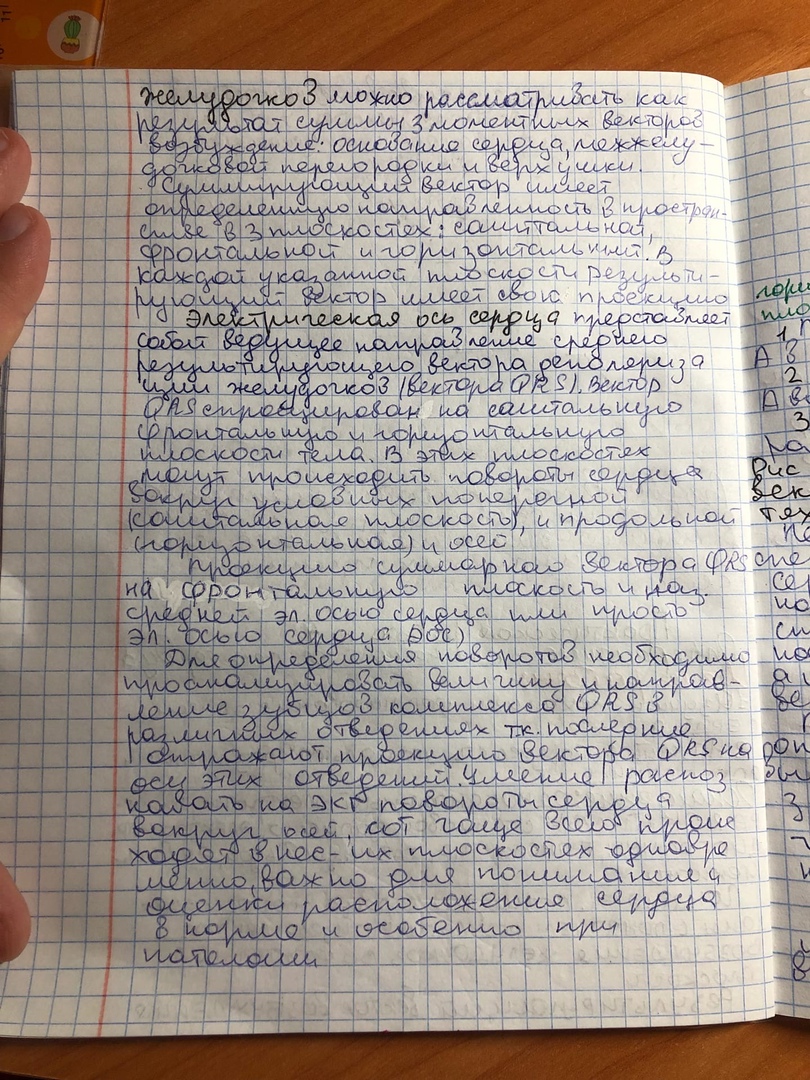 желудочков можно рассматривать как
результат суммы 3 моментных векторов
возбуждение: основание сердца, межжелу-
дочковой перегородки и верхушки.
Суммирующий вектор имеет
определенную направленность в простран-
стве в 3 плоскостях: саггитальной,
фронтальной и горизонтальный. В
каждой указанной плоскости результи-
рующий вектор имеет свою проекцию
Электрическая ось сердца представляет
собой ведущее направление среднего
результирующего вектора деполяриза
ции желудочков (вектора QRS). Вектор
QRS спроецирован на саггитальную
фронтальную и горизонтальную
плоскости тела. В этих плоскостях
могут происходить повороты сердца
вокруг условных поперечной
(саггитальная плоскость), и продольной
(горизонтальная) и осей
Проекцию суммарного вектора QRS
на фронтальную плоскость и наз.
средней эл. осью сердца или прость
эл. осью сердца ЭОС)
Для определения поворотов необходимо
проанализировать величину и направ-
ление зубцов комплекса QRS в
различных отведениях тк. последние
отражают проекцию вектора QRS на
оси этих отведений. Умение распоз
навать на ЭКГ повороты сердца
вокруг осей, кот чаще всего проис
ходят в нес-их плоскостях одновре
менно, важно для понимания и
оценки расположение сердца
в норме и особенно при
патологии
гори
пло
1
А В
2
А В
3
ра
Рис
век
тех